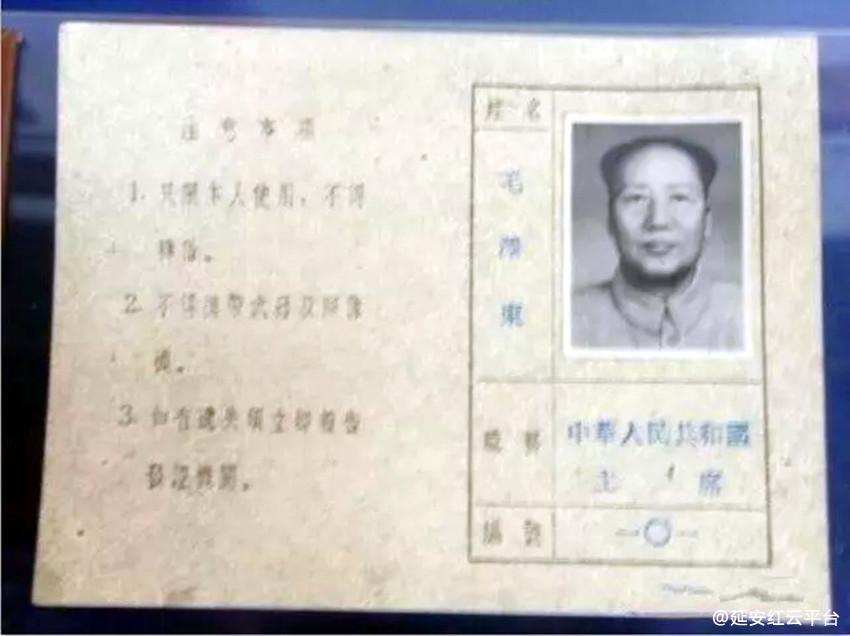 注意事項
1. 只限本人使用，不得
轉借。
2. 不得携帶武器及照像
機。
3. 如有遺失須立卽報告
發證機關。
姓名
毛澤東
職務
中華人民共和國
主席
編號
一〇一
@延安红云平台